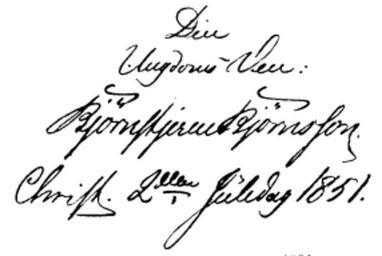 Din
Ungdoms-Ven:
Björnstjerne Björnsson.
Christ. 2den Juledag 1851.